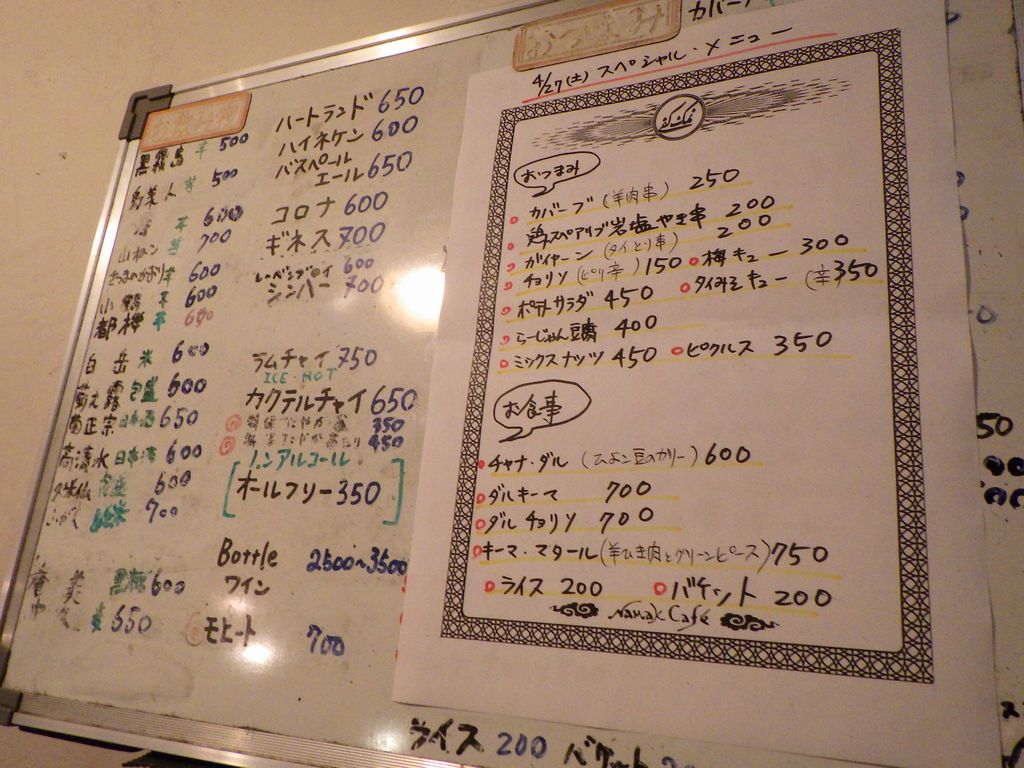 お飲み物
黒霧島 芋 500
野菜人 芋 500
芋 600
山ねこ 芋 700
さつまのかおり 芋 600
小鶴 芋 600
都櫻 芋 600
白岳 米 600
菊之露 泡盛 600
菊正宗 日本酒 650
高清水 日本酒 600
久米仙 泡盛 600
純米 700
黒糖 600
650
ハートランド 650
ハイネケン 600
バスペール
エール 650
コロナ 600
ギネス 700
600
シンハー 700
ラムチャイ 750
ICE・HOT
カクテルチャイ 650
350
450
ノンアルコール
[オールフリー 350]
Bottle 2500~3500
ワイン
モヒート 700
おつまみ
カバーブ
4/27(土) スペシャル・メニュー
おつまみ
カバーブ (羊肉串) 250
鶏スペアリブ岩塩やき串 200
ガイヤーン (タイとり串) 200
チョリソ (ピリ辛) 150 梅キュー 300
ポテトサラダ 450 タイみそキュー (辛) 350
らーじゃん豆腐 400
ミックスナッツ 450 ピクルス 350
お食事
チャナ・ダル (ひよこ豆のカリー) 600
ダルキーマ 700
ダルチョリソ 700
キーマ・マタール (羊ひき肉とグリーンピース) 750
ライス 200 バケット 200
Namak Café
50
ライス 200 バケット